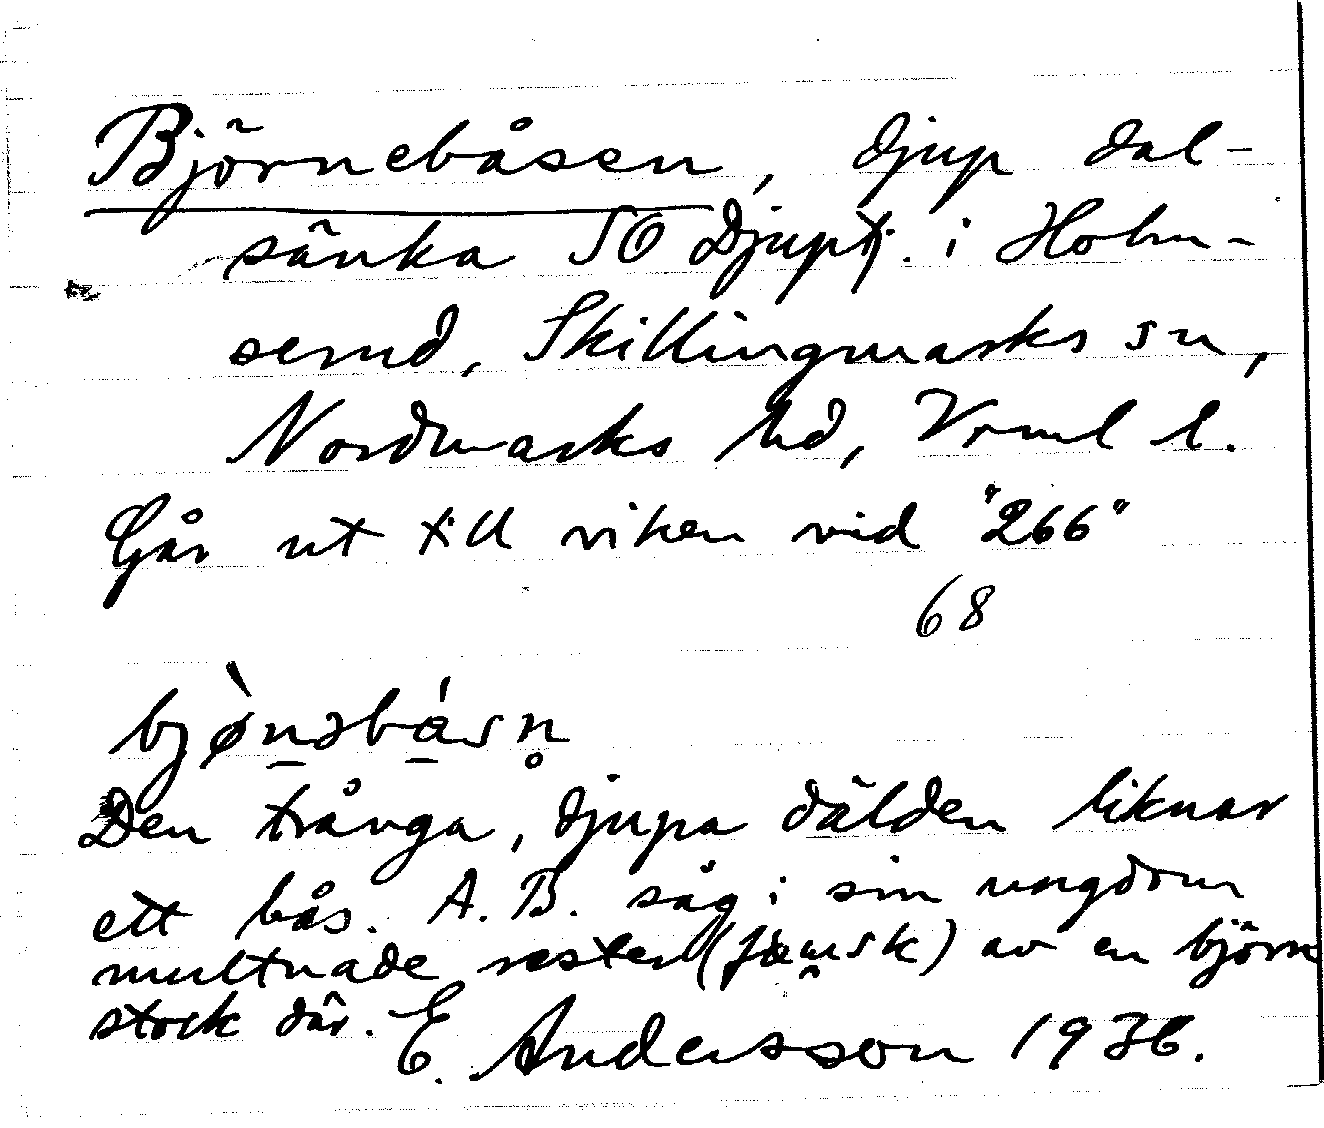 Björnebåsen, djup dal-
sänka SO Djuptj. i Holm-
serud, Skillingmarks sn,
Nordmarks hd, Vrml l.
Går ut till viken vid "266"
68
bjø̀nəbásn̥
Den trånga, djupa dälden liknar
ett bås. A. B. såg i sin ungdom
multnade rester av en björn
stock där. E. Andersson 1936.